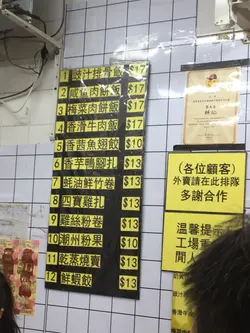 1 豉汁排骨飯 $17
2 咸魚肉餅飯 $17
3 梅菜肉餅飯 $17
4 香滑牛肉飯 $17
5 香茜魚翅餃 $10
6 香芋鴨腳扎 $13
7 蚝油鮮竹卷 $13
8 四寶雞扎 $13
9 雞絲粉卷 $13
10 潮州粉果 $10
11 乾蒸燒賣 $13
12 鮮蝦餃 $13
(各位顧客)
外賣請在此排隊
多謝合作
溫馨提示
工場重
閒人